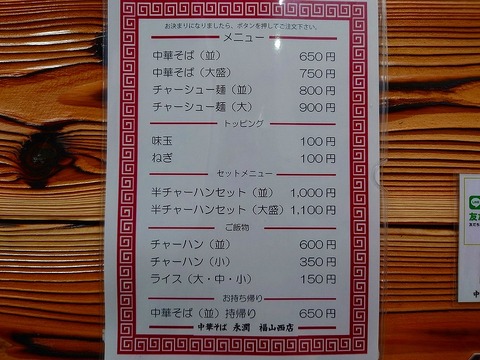 お決まりになりましたら、ボタンを押してご注文下さい。
メニュー
中華そば（並） 650円
中華そば（大盛） 750円
チャーシュー麺（並） 800円
チャーシュー麺（大） 900円
トッピング
味玉 100円
ねぎ 100円
セットメニュー
半チャーハンセット（並） 1,000円
半チャーハンセット（大盛） 1,100円
ご飯物
チャーハン（並） 600円
チャーハン（小） 350円
ライス（大・中・小） 150円
お持ち帰り
中華そば（並）持帰り 650円
中華そば 永潤 福山西店
友
中